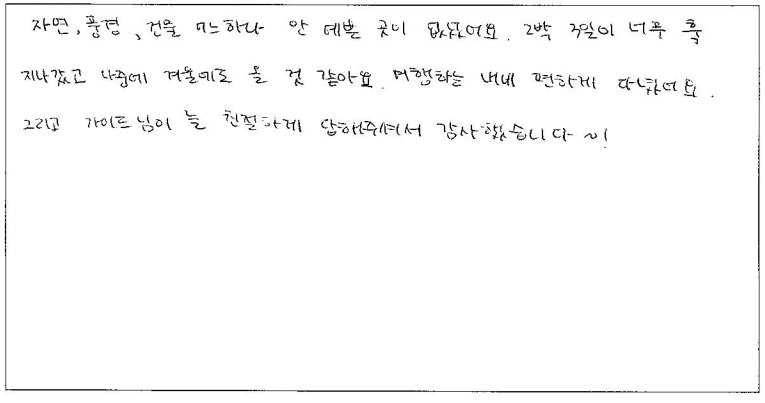 자연, 풍경, 건물 어느하나 안 예쁜 곳이 없었어요. 2박 3일이 너무 훅
지나갔고 나중에 겨울에도 올 것 같아요. 여행하는 내내 편하게 다녔어요.
그리고 가이드님이 늘 친절하게 답해주셔서 감사했습니다~!